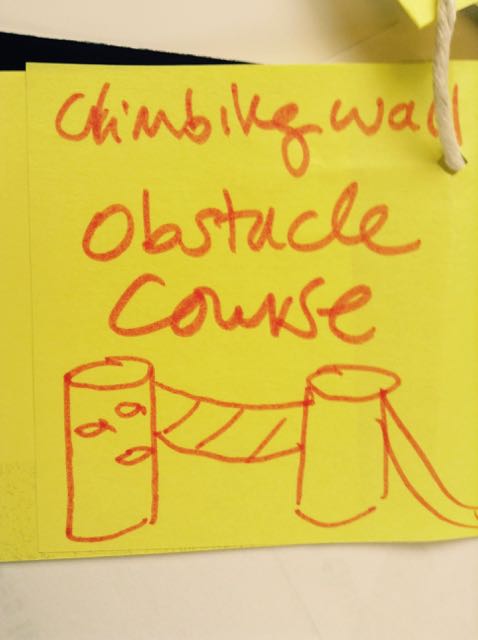 Climbing wall
Obstacle
Course